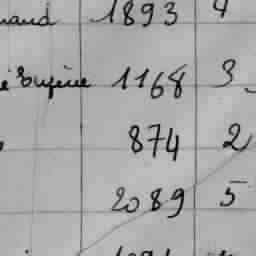 1893 4
Eugène 1168 3
874 2
2089 5